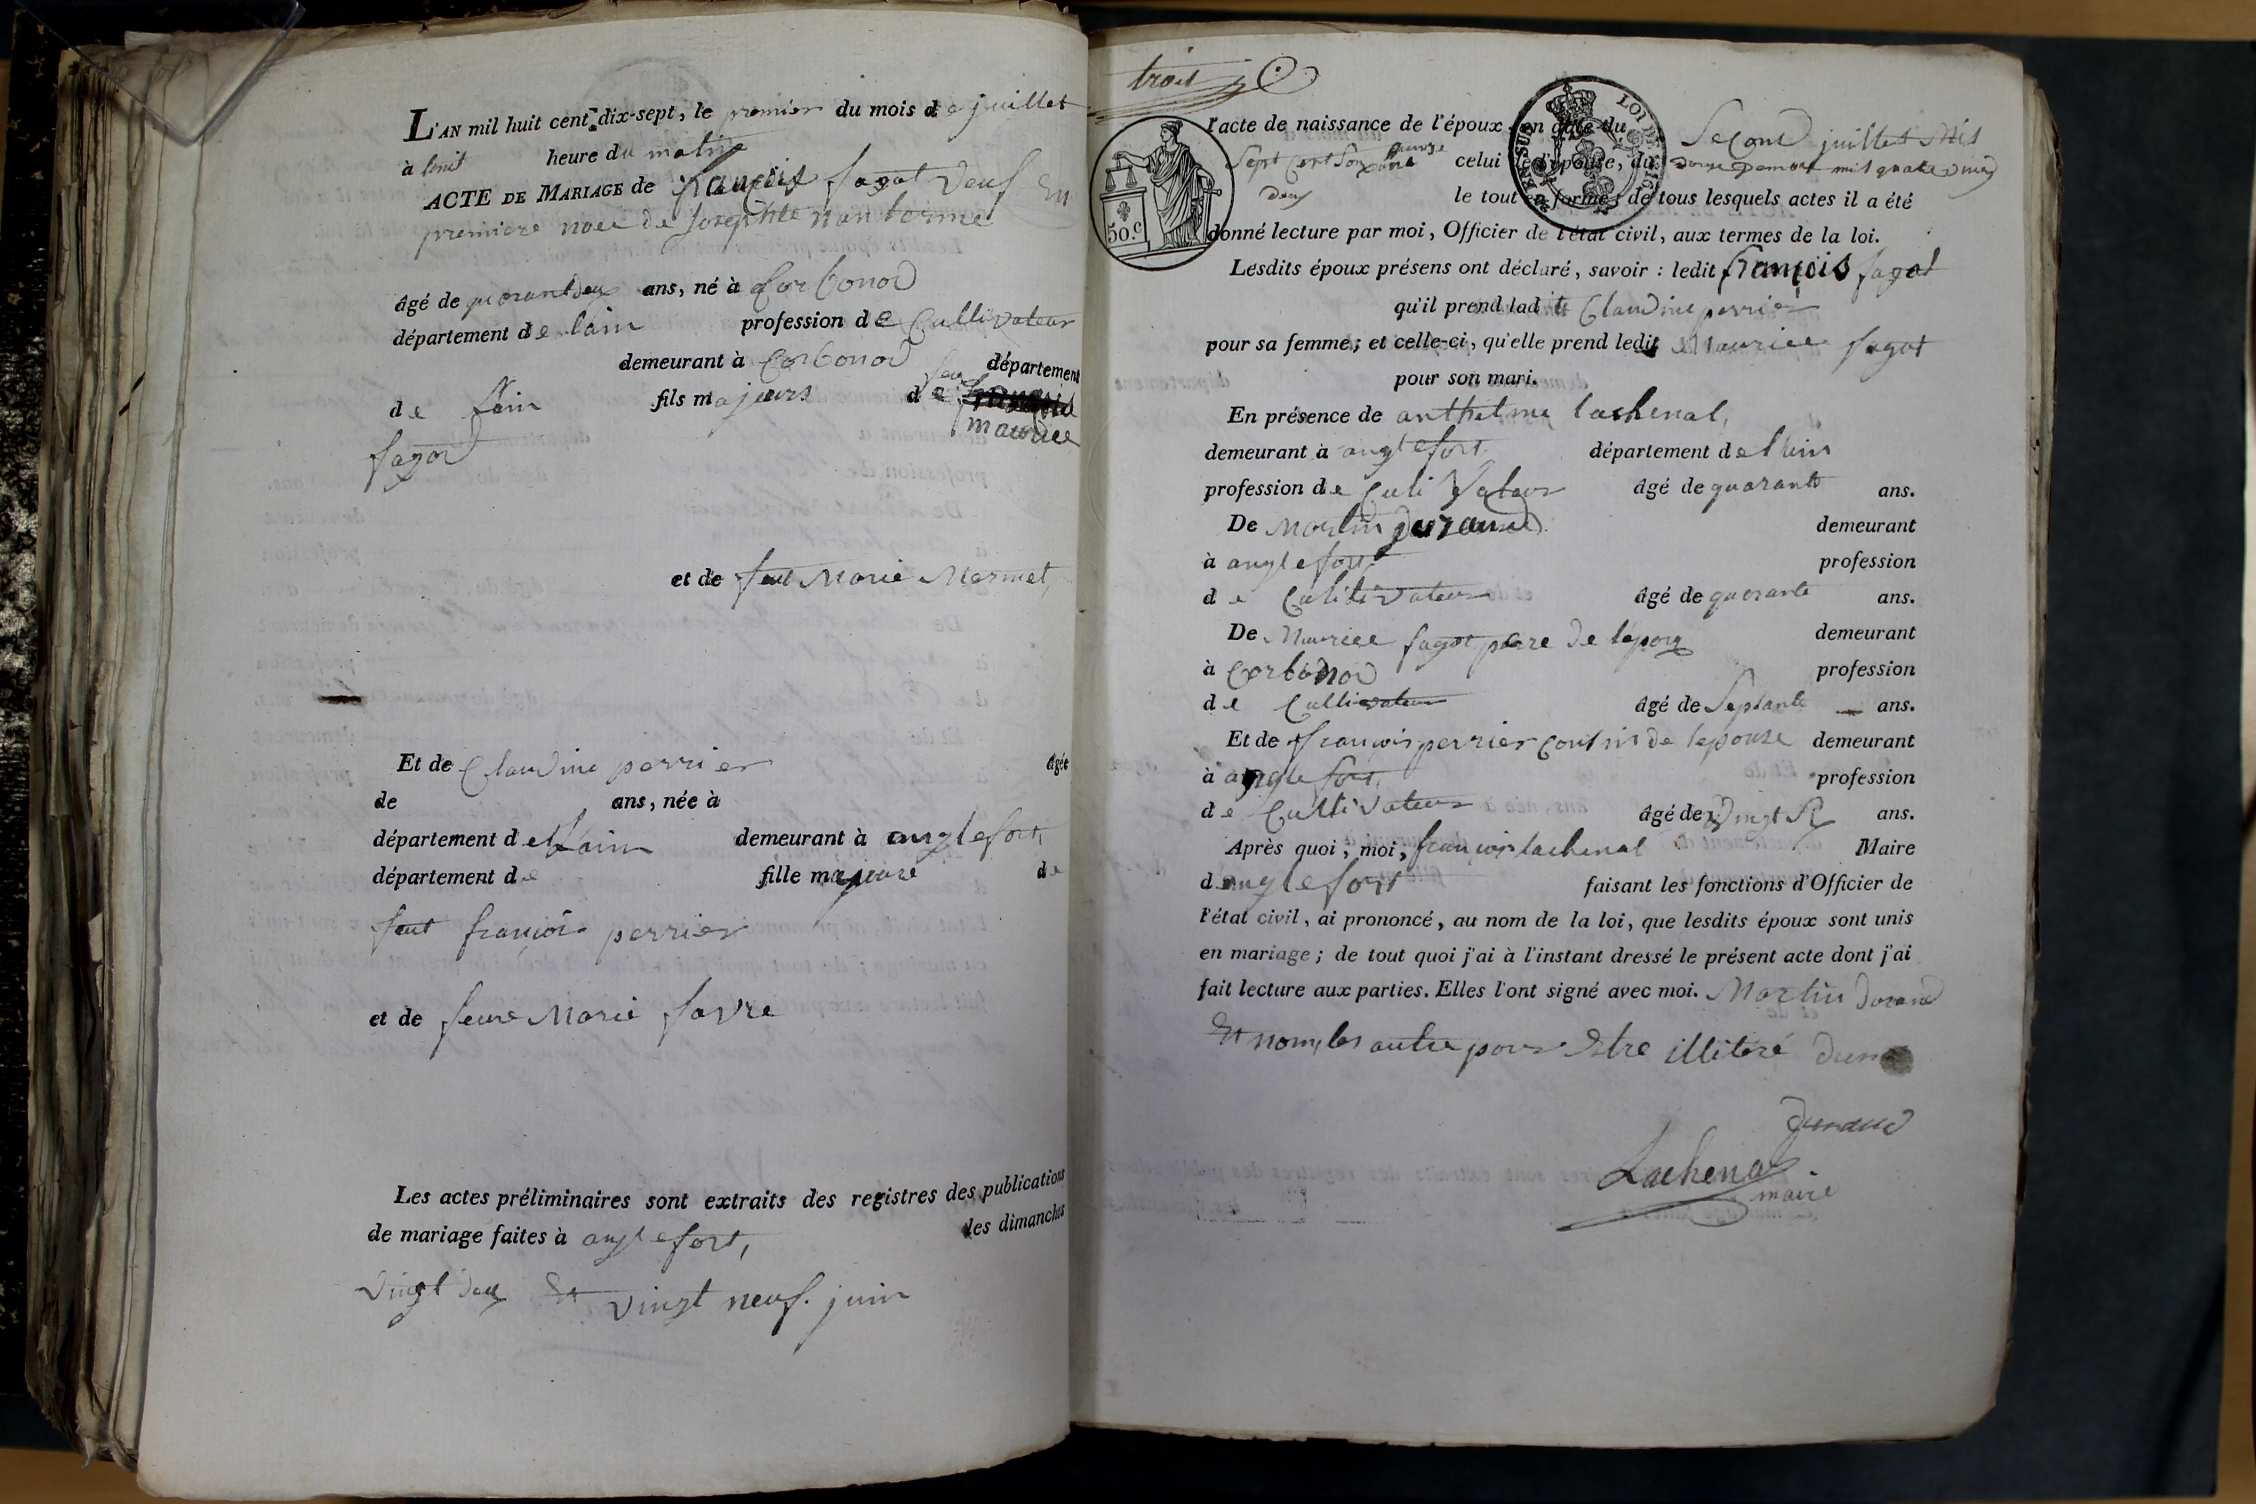 L'AN mil huit cent dix-sept, le premier du mois de juillet
à huit heure du matin
ACTE DE MARIAGE de François fagot veuf En
premiere noce de Josephte nanterme
âgé de quarantdeux ans, né à Corbonod
département de lain profession de Cullivateur
demeurant à Corbonod département
de lain fils majeurs de feu
maurice
fagod
et de feut Marie Mermet,
Et de Claudine perrier âgée
de ans, née à
département de Lain demeurant à anglefort,
département de fille majeure de
feut françois perrier
et de feure Marie favre
Les actes préliminaires sont extraits des registres des publications
de mariage faites à anglefort, les dimanches
vingt deux Et vingt neuf. juin
trois
l'acte de naissance de l'époux en date du Second juillet Mil
Sept Cent Soixante quinze celui de l'épouse, du mil quatre vingt
deux le tout en forme; de tous lesquels actes il a été
50.c donné lecture par moi, Officier de l'état civil, aux termes de la loi.
Lesdits époux présens ont déclaré, savoir : ledit françois fagot
qu'il prend ladite Claudine perrier
pour sa femme; et celle-ci, qu'elle prend ledit Maurice fagot
pour son mari.
En présence de anthelme lachenal,
demeurant à anglefort département de l'ain
profession de Culi Vateur âgé de quarante ans.
De Martin durand demeurant
à anglefort profession
de Culitivateur âgé de quarante ans.
De Maurice fagot pere de l'epoux demeurant
à Corbonod profession
de Cullivateur âgé de Septante ans.
Et de françois perrier Cousin de lepouse demeurant
à anglefort, profession
de Cultivateur âgé de vingt ans.
Après quoi, moi, françois lachenal Maire
d'anglefort faisant les fonctions d'Officier de
l'état civil, ai prononcé, au nom de la loi, que lesdits époux sont unis
en mariage; de tout quoi j'ai à l'instant dressé le présent acte dont j'ai
fait lecture aux parties. Elles l'ont signé avec moi. Martin durand
Et nom les autre pour Estre illiteré
durand
Lachenal
maire